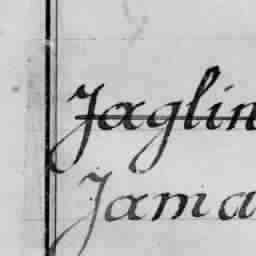 Jaglin
Jama